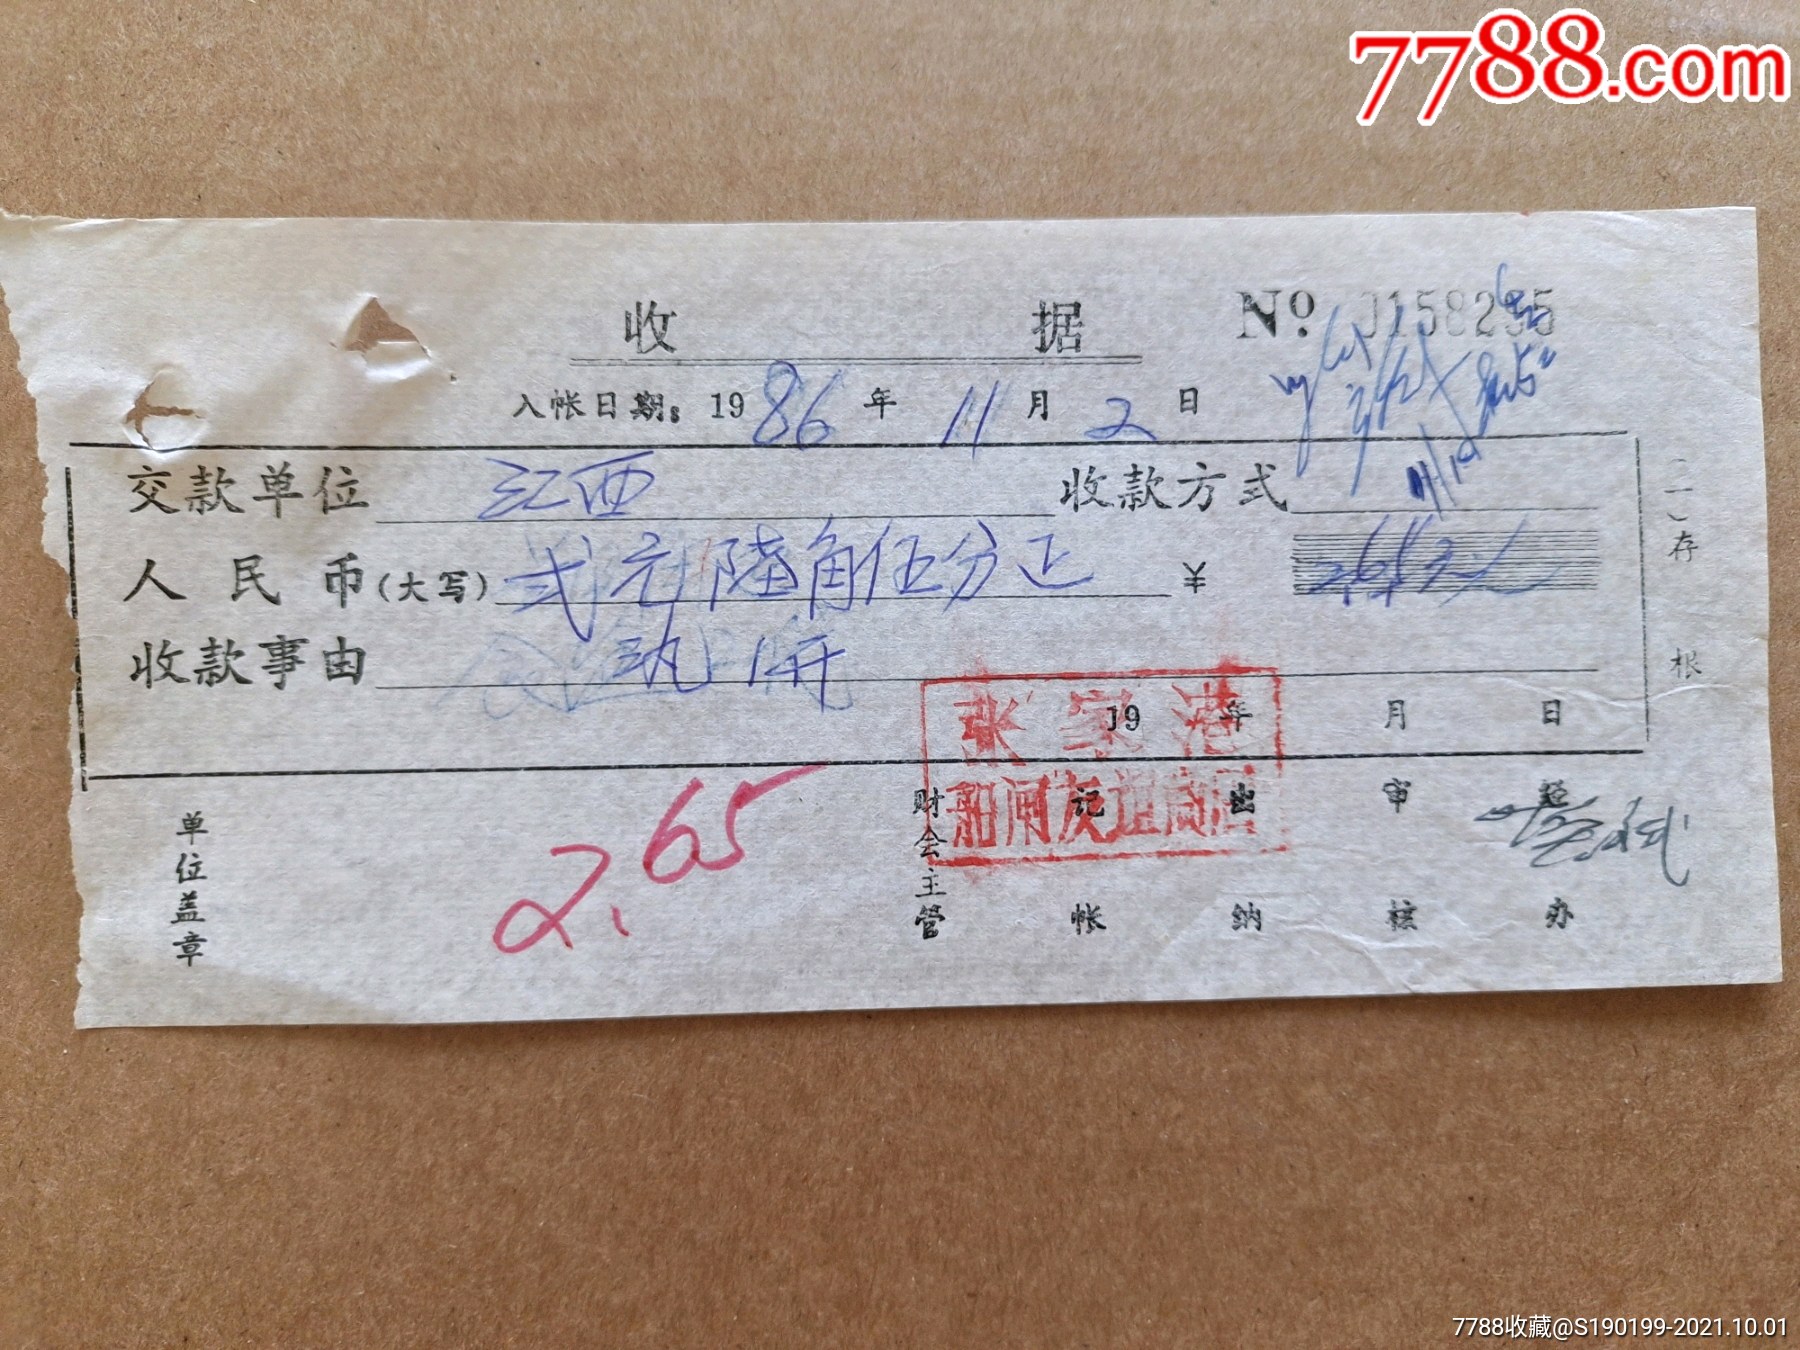 7788.com
收 据 № 0158235
入帐日期: 1986年 11月 2日
交款单位 江西 收款方式
11/12
人民币(大写) 弍元陆角伍分正 ¥ 2.65元
收款事由
张家港
船闸友谊商店
19 年 月 日
(一)存根
单位盖章
2.65
财会主管 记帐 出纳 审核 经办
7788收藏@S190199-2021.10.01